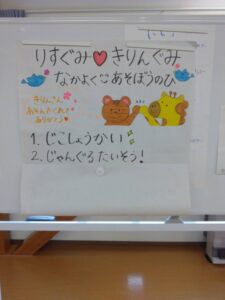 りすぐみ♥きりんぐみ
なかよく あそぼうのひ
きりんさん
あそんでくれて
ありがとう♥
1. じこしょうかい
2. じゃんぐるたいそう!